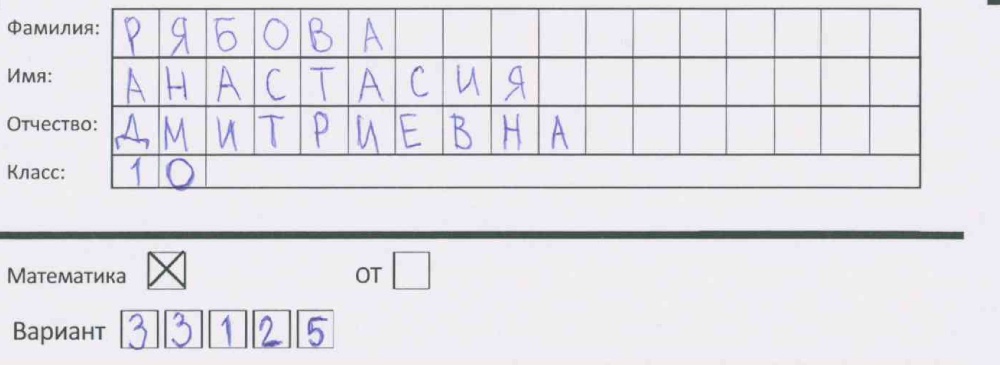 Фамилия: РЯБОВА
Имя: АНАСТАСИЯ
Отчество: ДМИТРИЕВНА
Класс: 10
Математика ☒ ОТ ☐
Вариант 33125